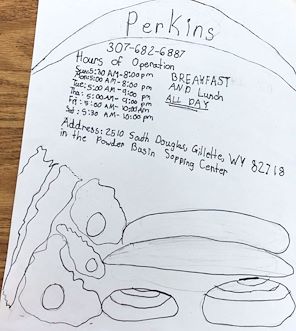 Perkins
307-682-6887
Hours of Operation
Sun:5:30 AM-8:00pm
5:00 AM-8:00 pm
Tue:5:00 AM-9:00 pm
Thu: 5:00AM-9:00 pm
Fri: 5:00 AM-10:00Am
Sat: 5:30 AM-10:00 pm
BREAKFAST
AND Lunch
ALL DAY
Address: 2510 South Douglas, Gillette, WY 82718
in the Powder Basin Sopping Center